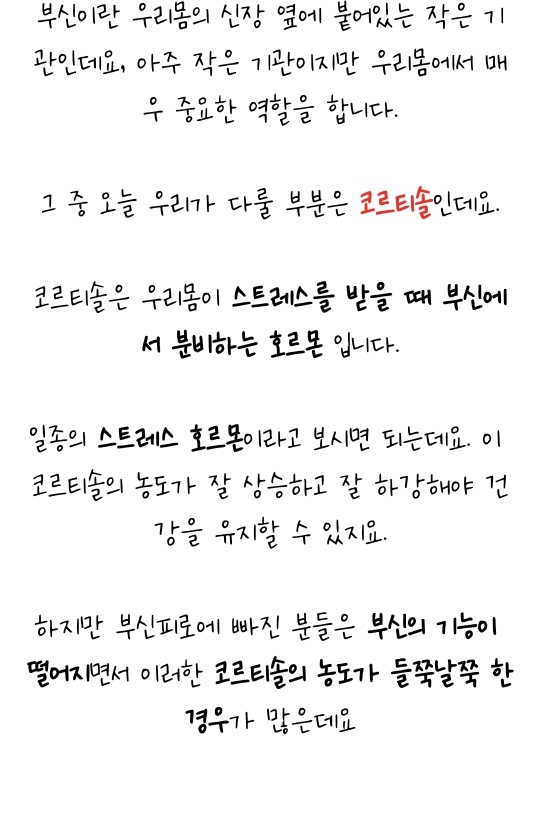 부신이란 우리몸의 신장 옆에 붙어있는 작은 기
관인데요, 아주 작은 기관이지만 우리몸에서 매
우 중요한 역할을 합니다.
그 중 오늘 우리가 다룰 부분은 코르티솔인데요.
코르티솔은 우리몸이 스트레스를 받을 때 부신에
서 분비하는 호르몬 입니다.
일종의 스트레스 호르몬이라고 보시면 되는데요. 이
코르티솔의 농도가 잘 상승하고 잘 하강해야 건
강을 유지할 수 있지요.
하지만 부신피로에 빠진 분들은 부신의 기능이
떨어지면서 이러한 코르티솔의 농도가 들쭉날쭉 한
경우가 많은데요